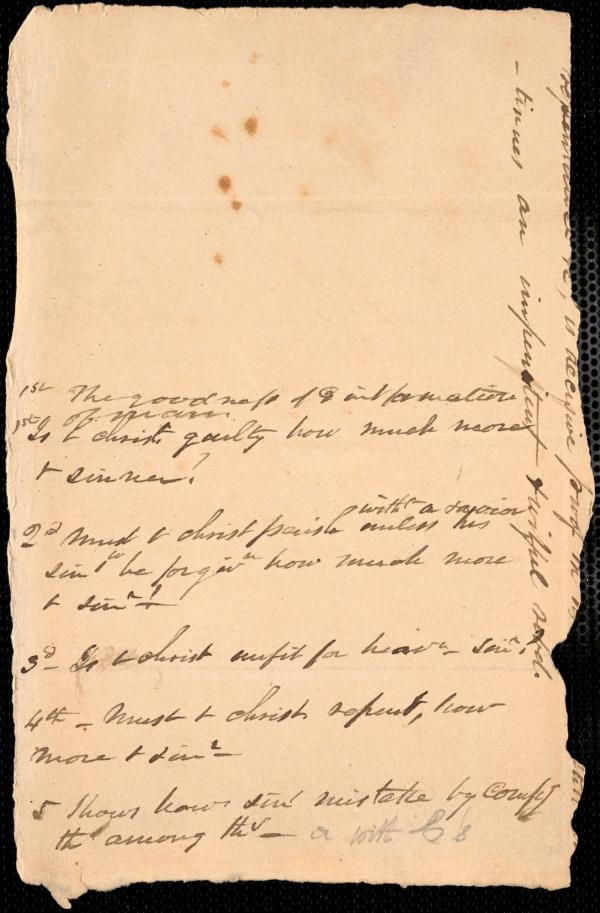 1st The goodness of G in formation
of man.
1st Is t christ. guilty how much more
t sinner!
2d Must t christ perish without a savior
unless his
sins be forgivn how much more
t sinr!
3d - Is t christ unfit for heavn - sinr!
4th - Must t christ repent, how
more t sinr -
5 Shows how sinr mistake by
among ths - a with
- tinues an impenitent sinful
is decisive proof